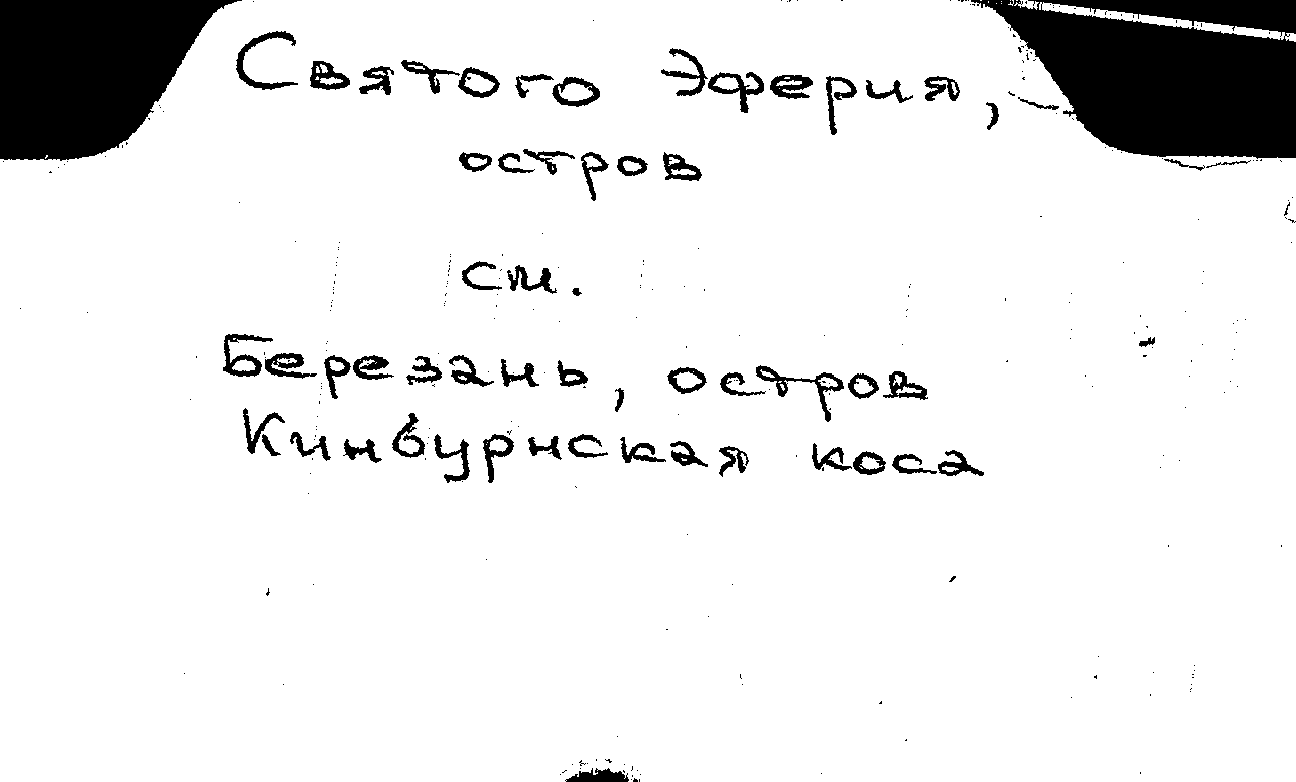 Святого Эферия,
остров
см.
Березань, остров
Кинбурнская коса